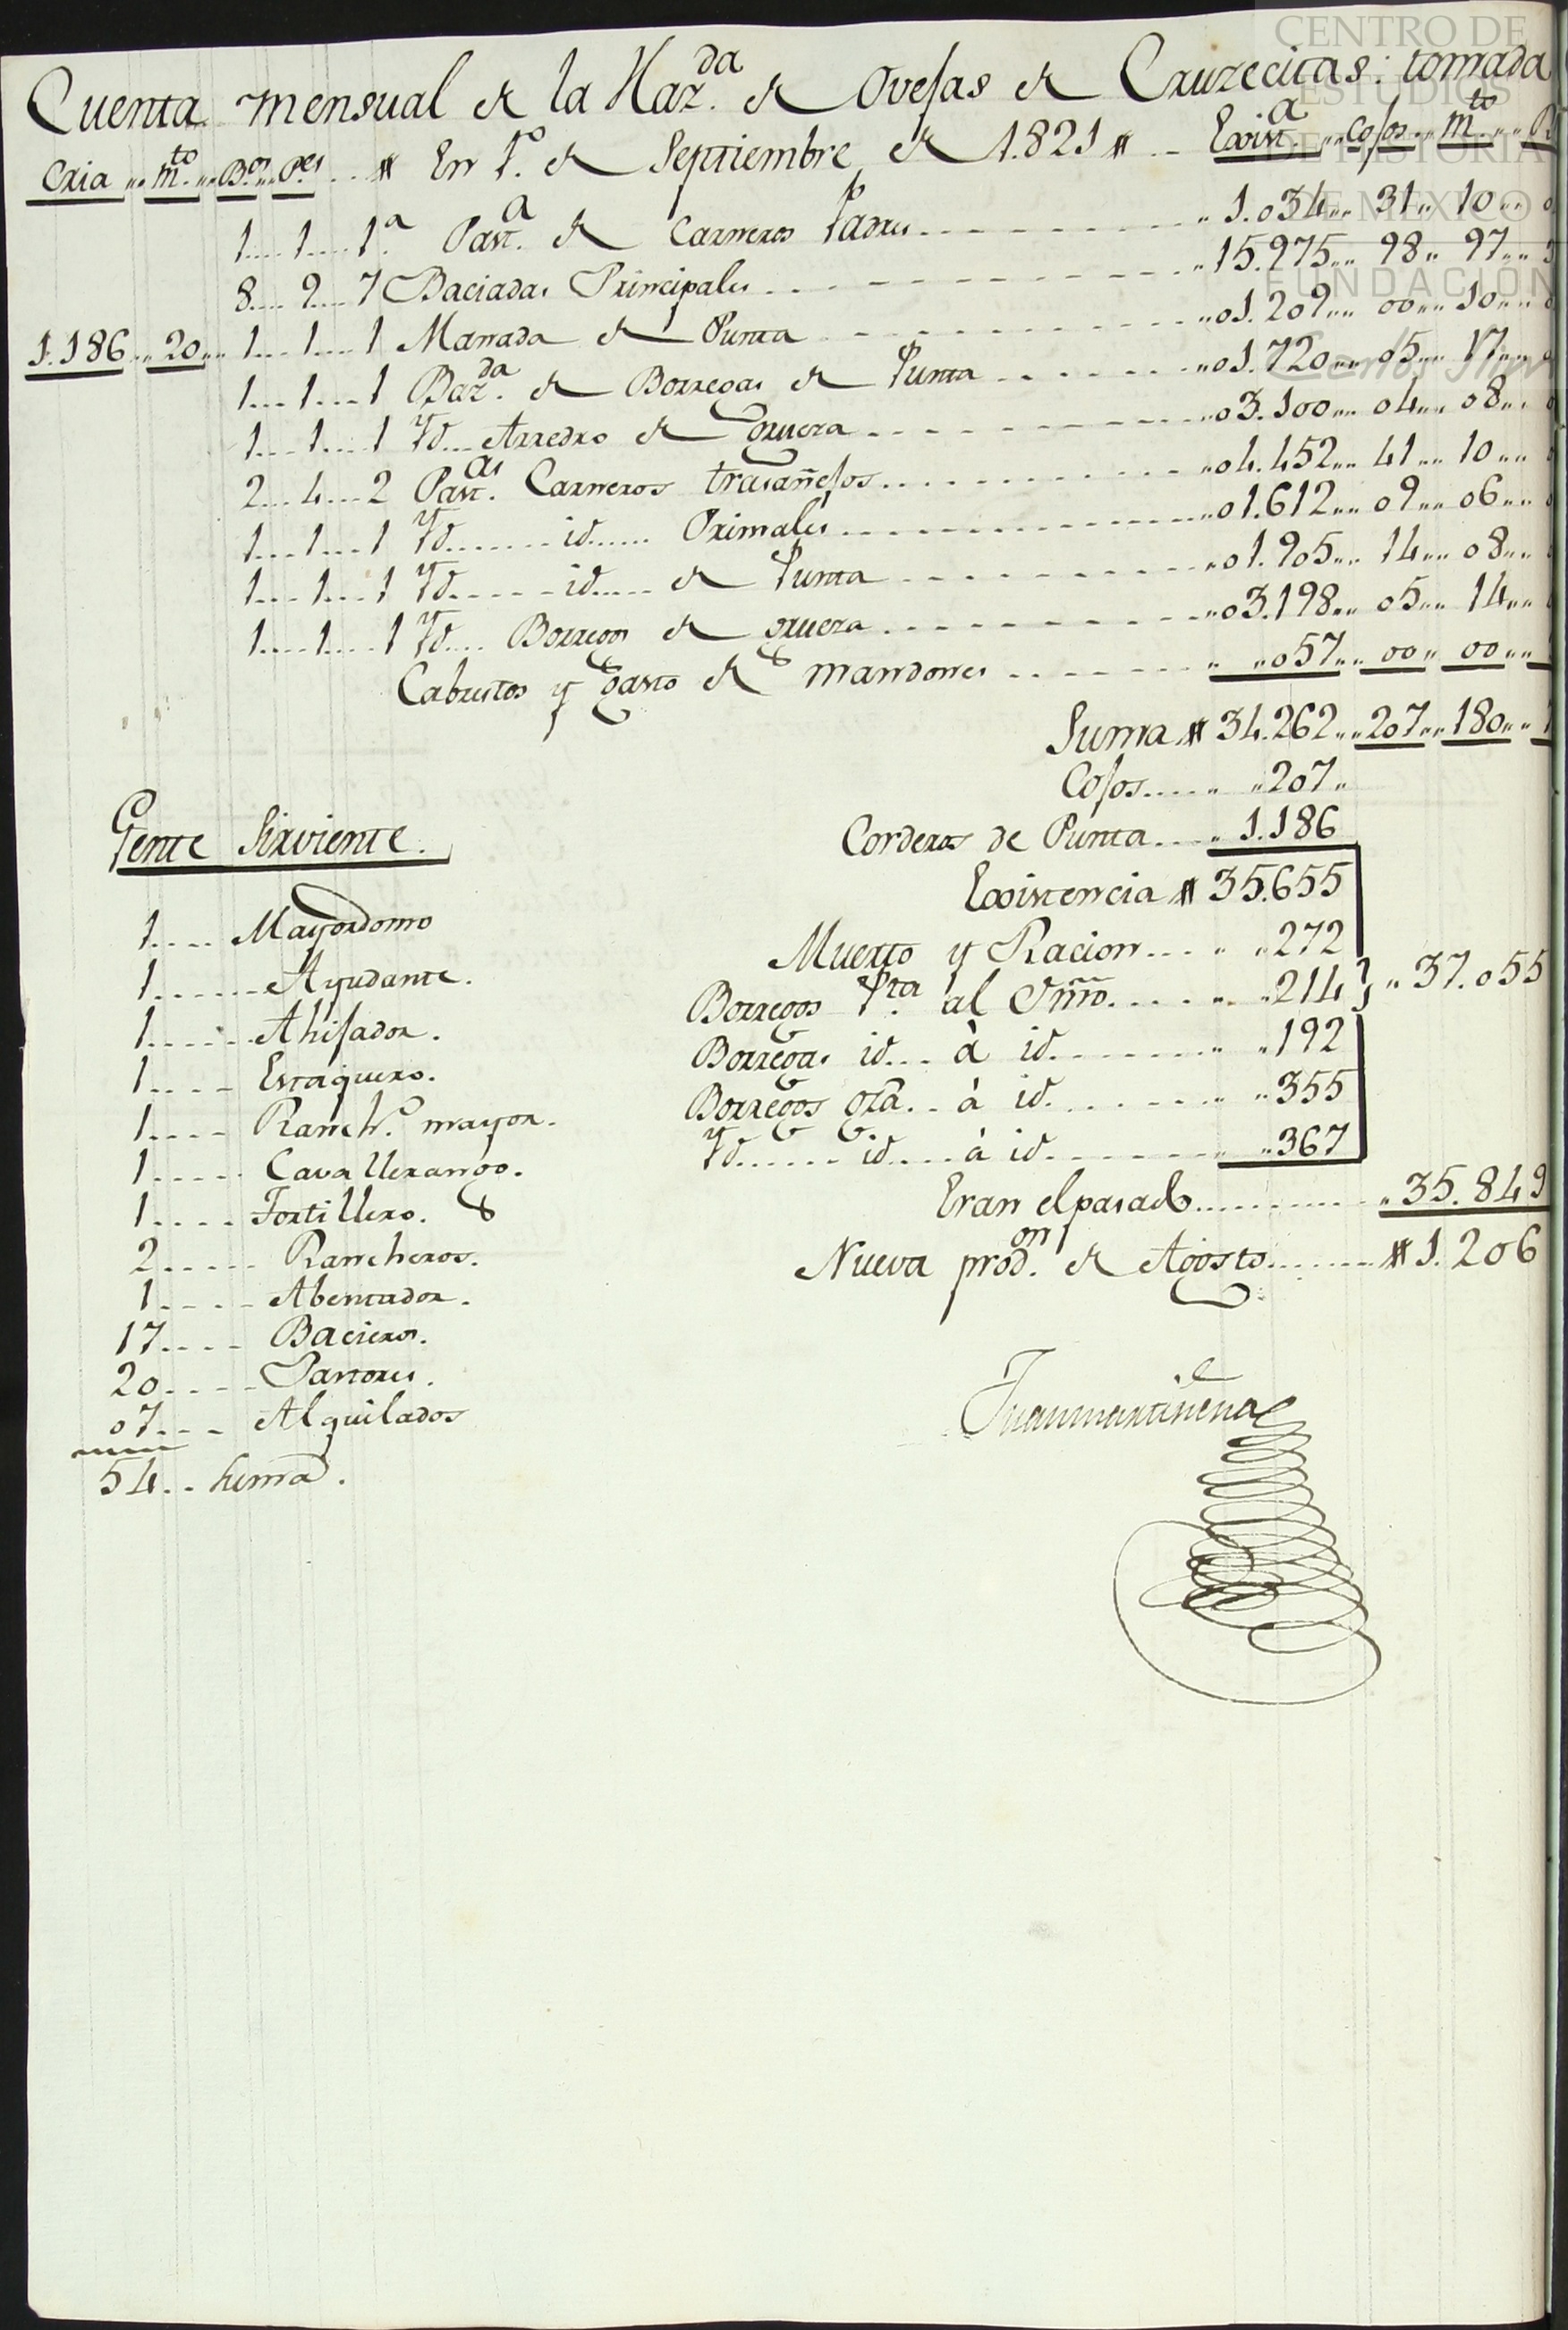 CENTRO DE
ESTUDIOS
DE HISTORIA
DE MEXICO
FUNDACIÓN
Cuenta mensual de la Haz.da de Ovejas de Cruzecitas: tomada
Cria m.to B.os P.es # En 1.º de Septiembre de 1.821 # Exist.a cojos m.to
1 1 1.a Past.a de Carneros Padres 1.034 31 10
8 9 7 Baciadas Principales 15.975 98 97
1.186 20 1 1 1 Manada de Punta 01.209 00 10
1 1 1 Baz.da de Borregas de Punta 01.720 05 17
1 1 1 Yd. Arredro de grueza 03.100 04 08
2 4 2 Past.as Carneros trasañejos 04.452 41 10
1 1 1 Yd. id. Primales 01.612 09 06
1 1 1 Yd. id. de Punta 01.905 14 08
1 1 1 Yd. Borregos de grueza 03.198 05 14
Cabrestos y gasto de mandones 057 00 00
Suma # 34.262 207 180
Cojos 207
Corderos de Punta 1.186
Existencia # 35.655
Muerto y Racion 272
Borregos P.ta al 214 37.055
Borregas id. à id. 192
Borregos gza. à id. 355
Yd. id. à id. 367
Eran el pasado 35.849
Nueva prod.on de Agosto # 1.206
Gente Sirviente.
1 Mayordomo
1 Ayudante.
1 Ahijador.
1 Estaquero.
1 Ranch.º mayor.
1 Cavallerango.
1 Tortillero.
2 Rancheros.
1 Abentador.
17 Bacieros.
20 Pastores.
07 Alquilados
54 suma.
Juan martiñena